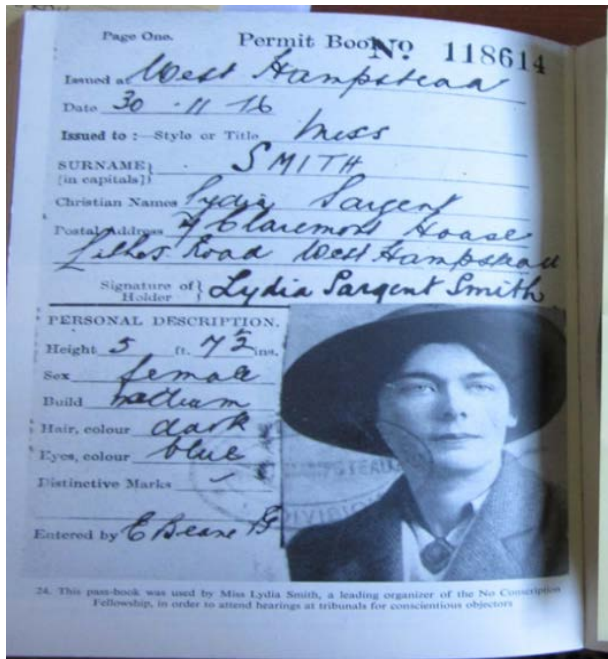 Page One.
Permit Book No 118614
Issued at West Hampstead
Date 30 - 11 16
Issued to :—Style or Title Miss
SURNAME} SMITH
[in capitals]}
Christian Names Lydia Sargent
Postal Address 7 Claremont House
Lithos Road West Hampstead
Signature of} Lydia Sargent Smith
Holder
PERSONAL DESCRIPTION.
Height 5 ft. 7 ½ ins.
Sex female
Build medium
Hair, colour dark
Eyes, colour blue
Distinctive Marks
Entered by E Beane
24. This pass-book was used by Miss Lydia Smith, a leading organizer of the No Conscription
Fellowship, in order to attend hearings at tribunals for conscientious objectors